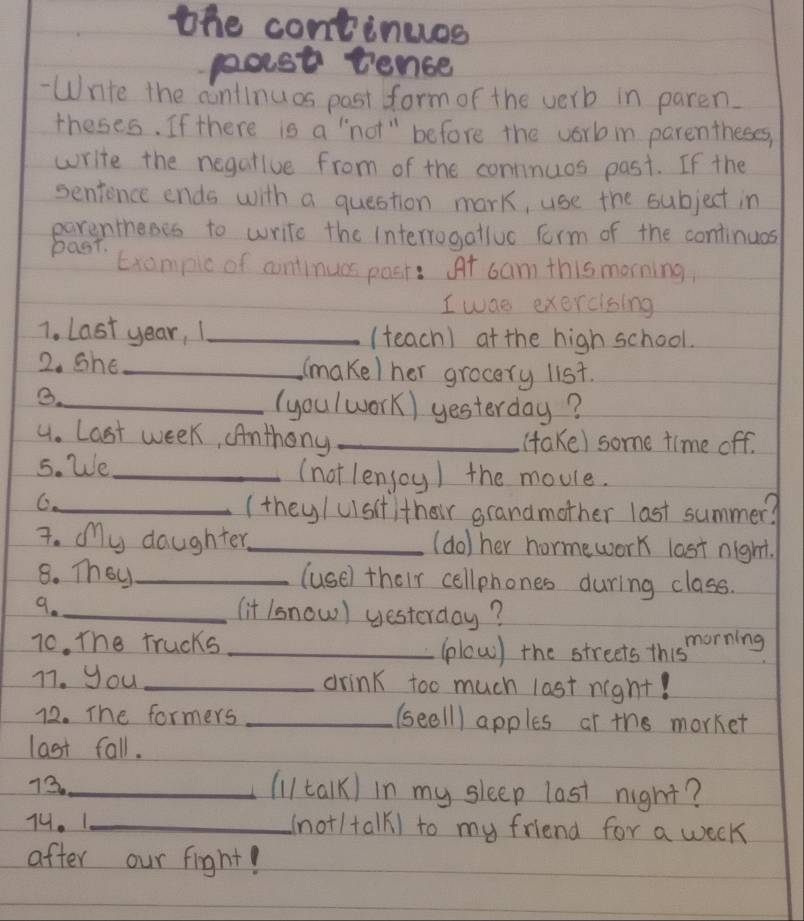 the continuos
past tense
-Write the continuos past form of the verb in paren-
theses. If there is a "not" before the verb in parentheses,
write the negative from of the continuos past. If the
sentence ends with a question mark, use the subject in
parentheses to write the interrogative form of the continuos
past.
Example of continuos past: At 6am this morning,
I was exercising
1. Last year, I__________(teach) at the high school.
2. She__________(make) her grocery list.
3.__________(you/work) yesterday?
4. Last week, Anthony__________(take) some time off.
5. We__________(not/enjoy) the movie.
6.__________(they/visit) their grandmother last summer?
7. My daughter__________(do) her hormework last night.
8. They__________(use) their cellphones during class.
9.__________(it/snow) yesterday?
10. The trucks__________(plow) the streets this morning.
11. You__________drink too much last night!
12. The formers__________(seell) apples at the market
last fall.
13.__________(I/talk) in my sleep last night?
14. I__________(not/talk) to my friend for a week
after our fight!